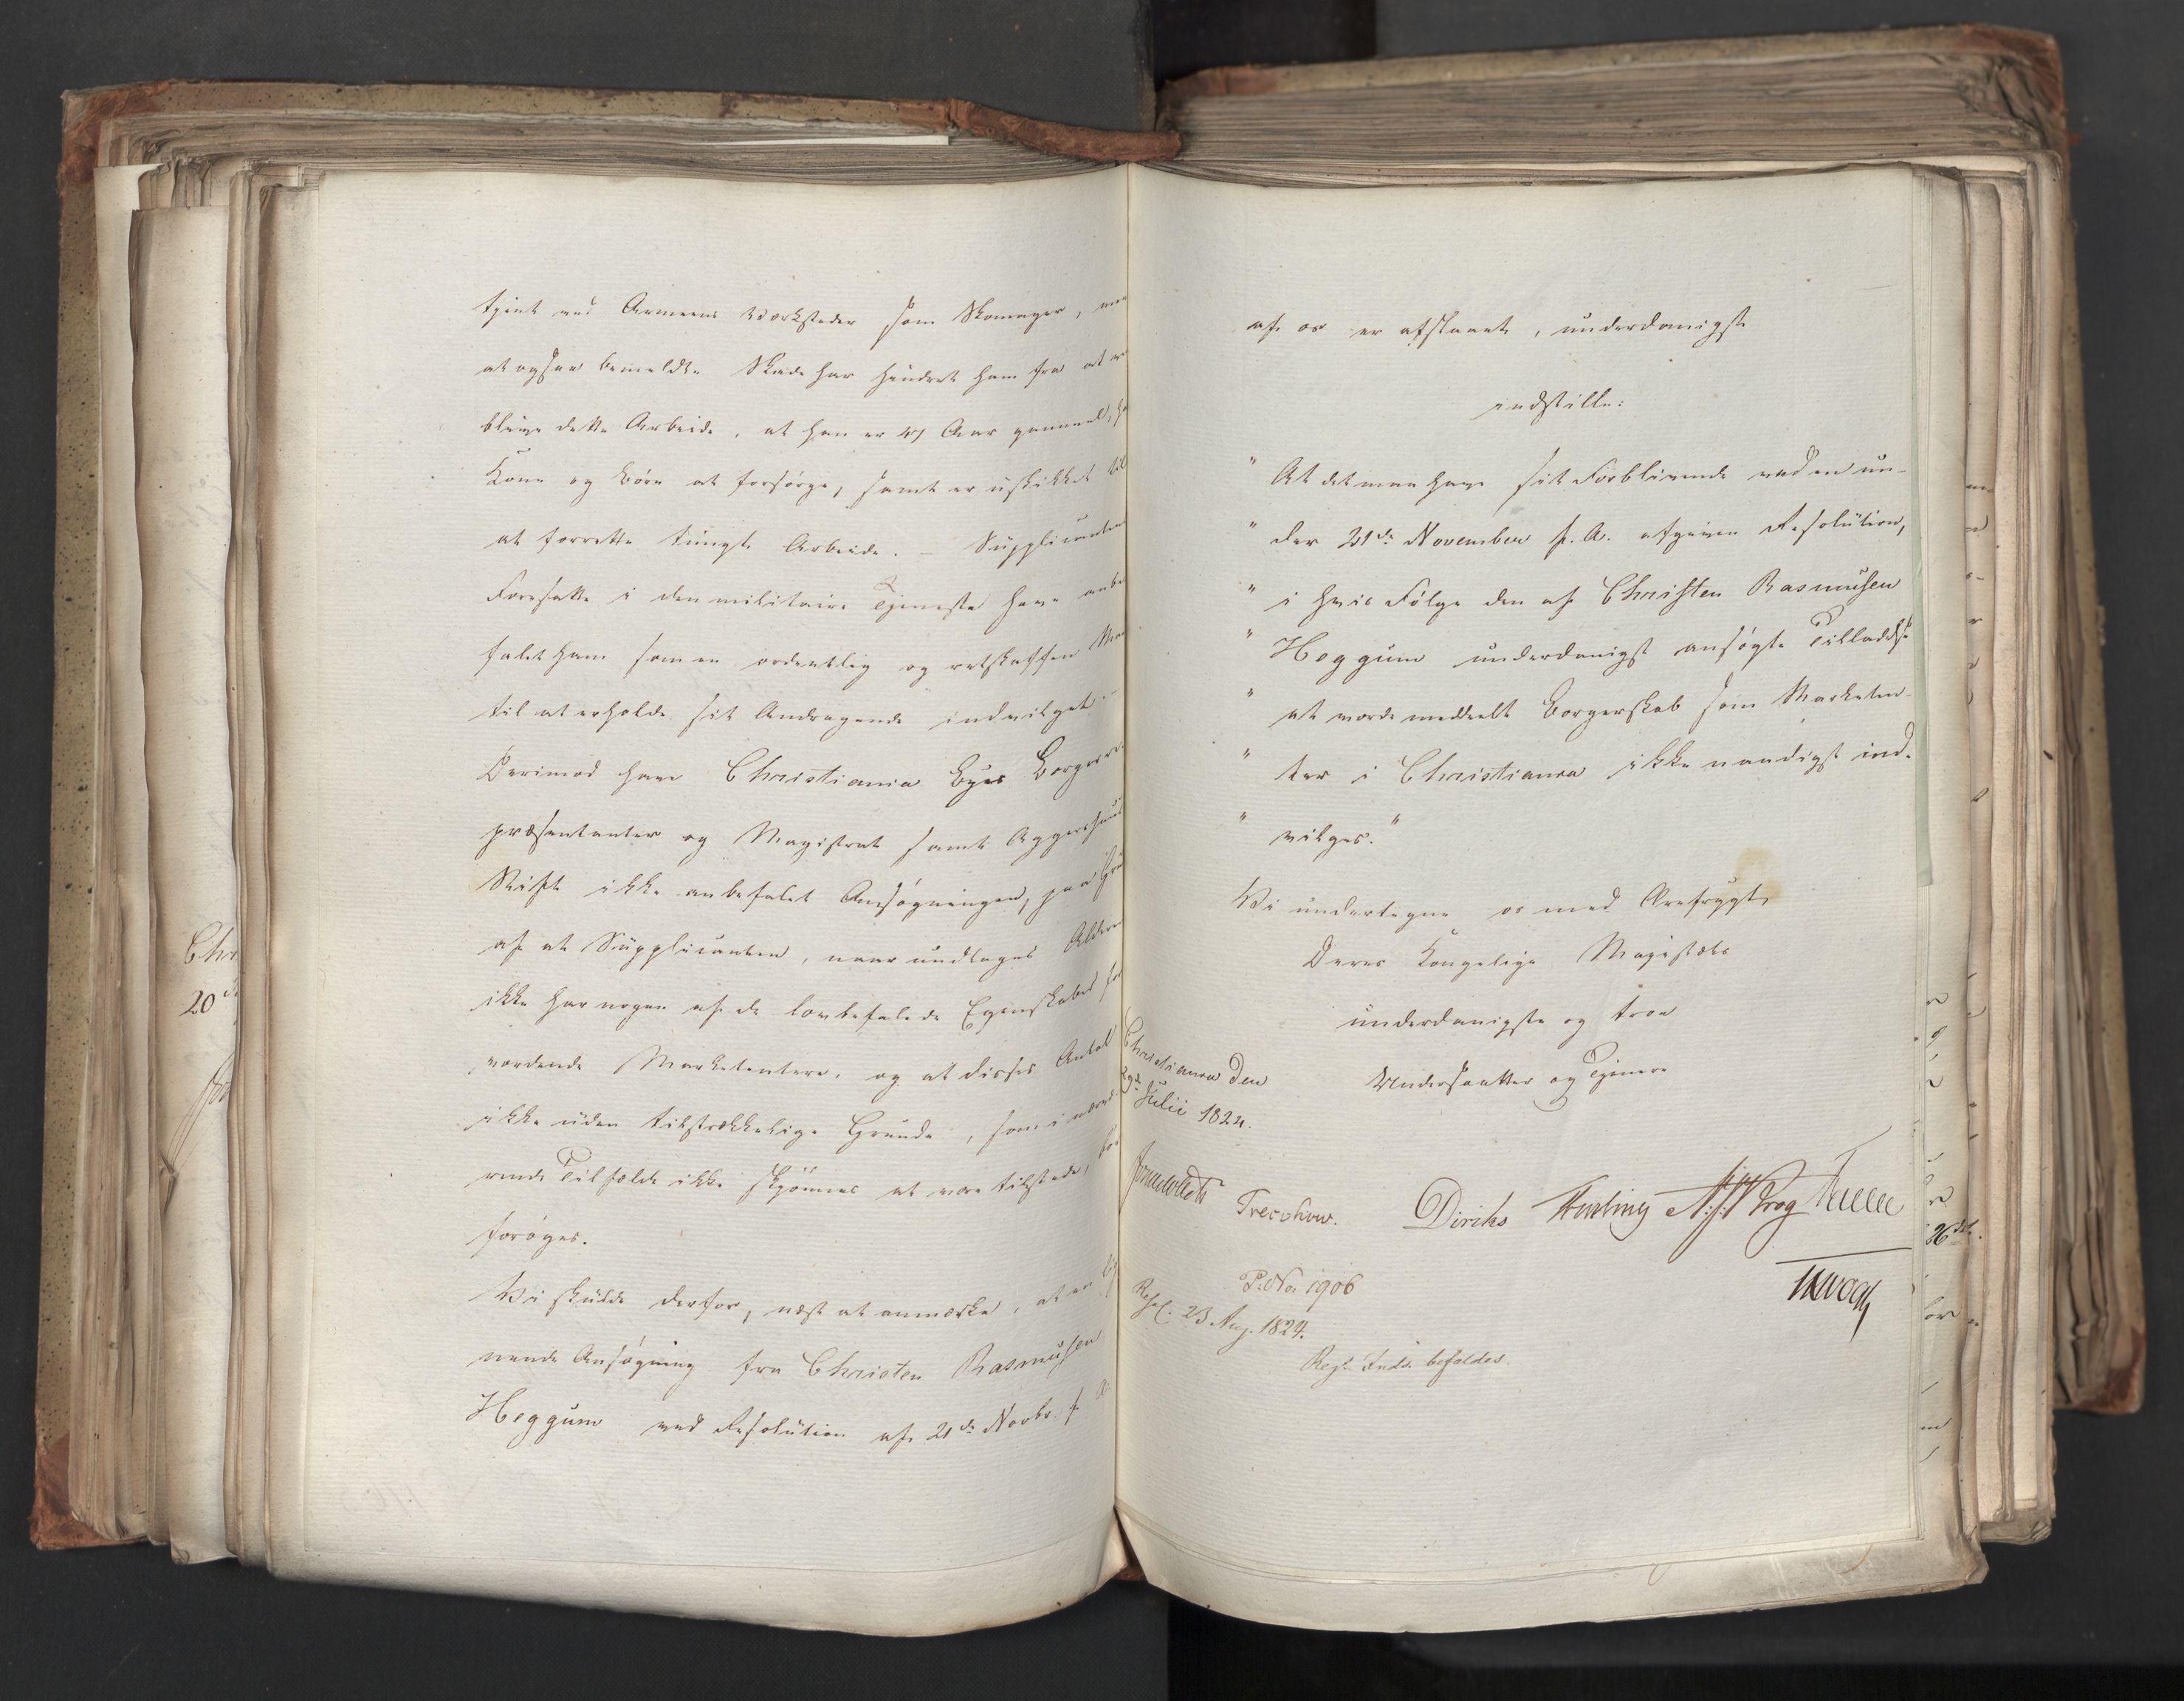 tjent ved Armeens Værksteder som Skomager, men
at ogsaa bemeldte Skade har hindret ham fra at
blive dette Arbeide, at han er 47 Aar gammel, h
Kone og Børn at forsørge, samt er uskikket til
at forrette tungt Arbeide. – Supplicantens
Foresatte i den militaire Tjeneste have anbe
falet ham som en ordentlig og retskaffen Ma
til at erholde sit Andragende indvilget. –
Derimod have Christiania Byes Borgerre
præsentanter og Magistrat samt Aggershuus
Stift ikke anbefalet Ansøgningen, paa Gru
af at Supplicanten, naar undtages Alderen
ikke har nogen af de lovbefalede Egenskaber for
vordende Marketentere, og at disses Antal
ikke uden tilstrækkelige Grunde, som i nærvæ
rende Tilfælde ikke skjønnes at være tilstede, bør
forøges.
Vi skulde derfor, næst at anmærke, at en lig
nende Ansøgning fra Christen Rasmusen
Heggum ved Resolution af 21de Novbr. f. A.
af os er afslaaet, underdanigst
indstille:
" At det maa have sit Forblivende ved en un-
" der 21de November f. A. afgiven Resolution,
" i hvis Følge den af Christen Rasmusen
" Heggum underdanigst ansøgte Tilladelse
" at vorde meddeelt Borgerskab som Marketen-
" ter i Christiania ikke naadigst ind-
" vilges."
Vi undertegne os med Ærefrygt,
Deres Kongelige Majestæts
underdanigste og troe
Undersaatter og Tjenere
Christiania den
29de Julii 1824.
Sommerfeldt Treschow. Diriks Hertling A. J. Krog
P. No: 1906
Resol. 23 Aug. 1824.
Regl. Indst. befaldes.
Chr
20de
26de